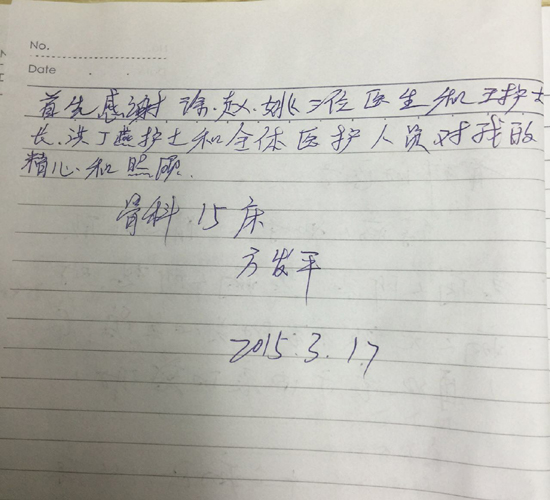 No.
Date
首先感谢 涂.赵.姚三位医生和王护士
长.洪丁燕护士和全体医护人员对我的
精心.和照顾.
骨科.15床
方发平
2015.3.17